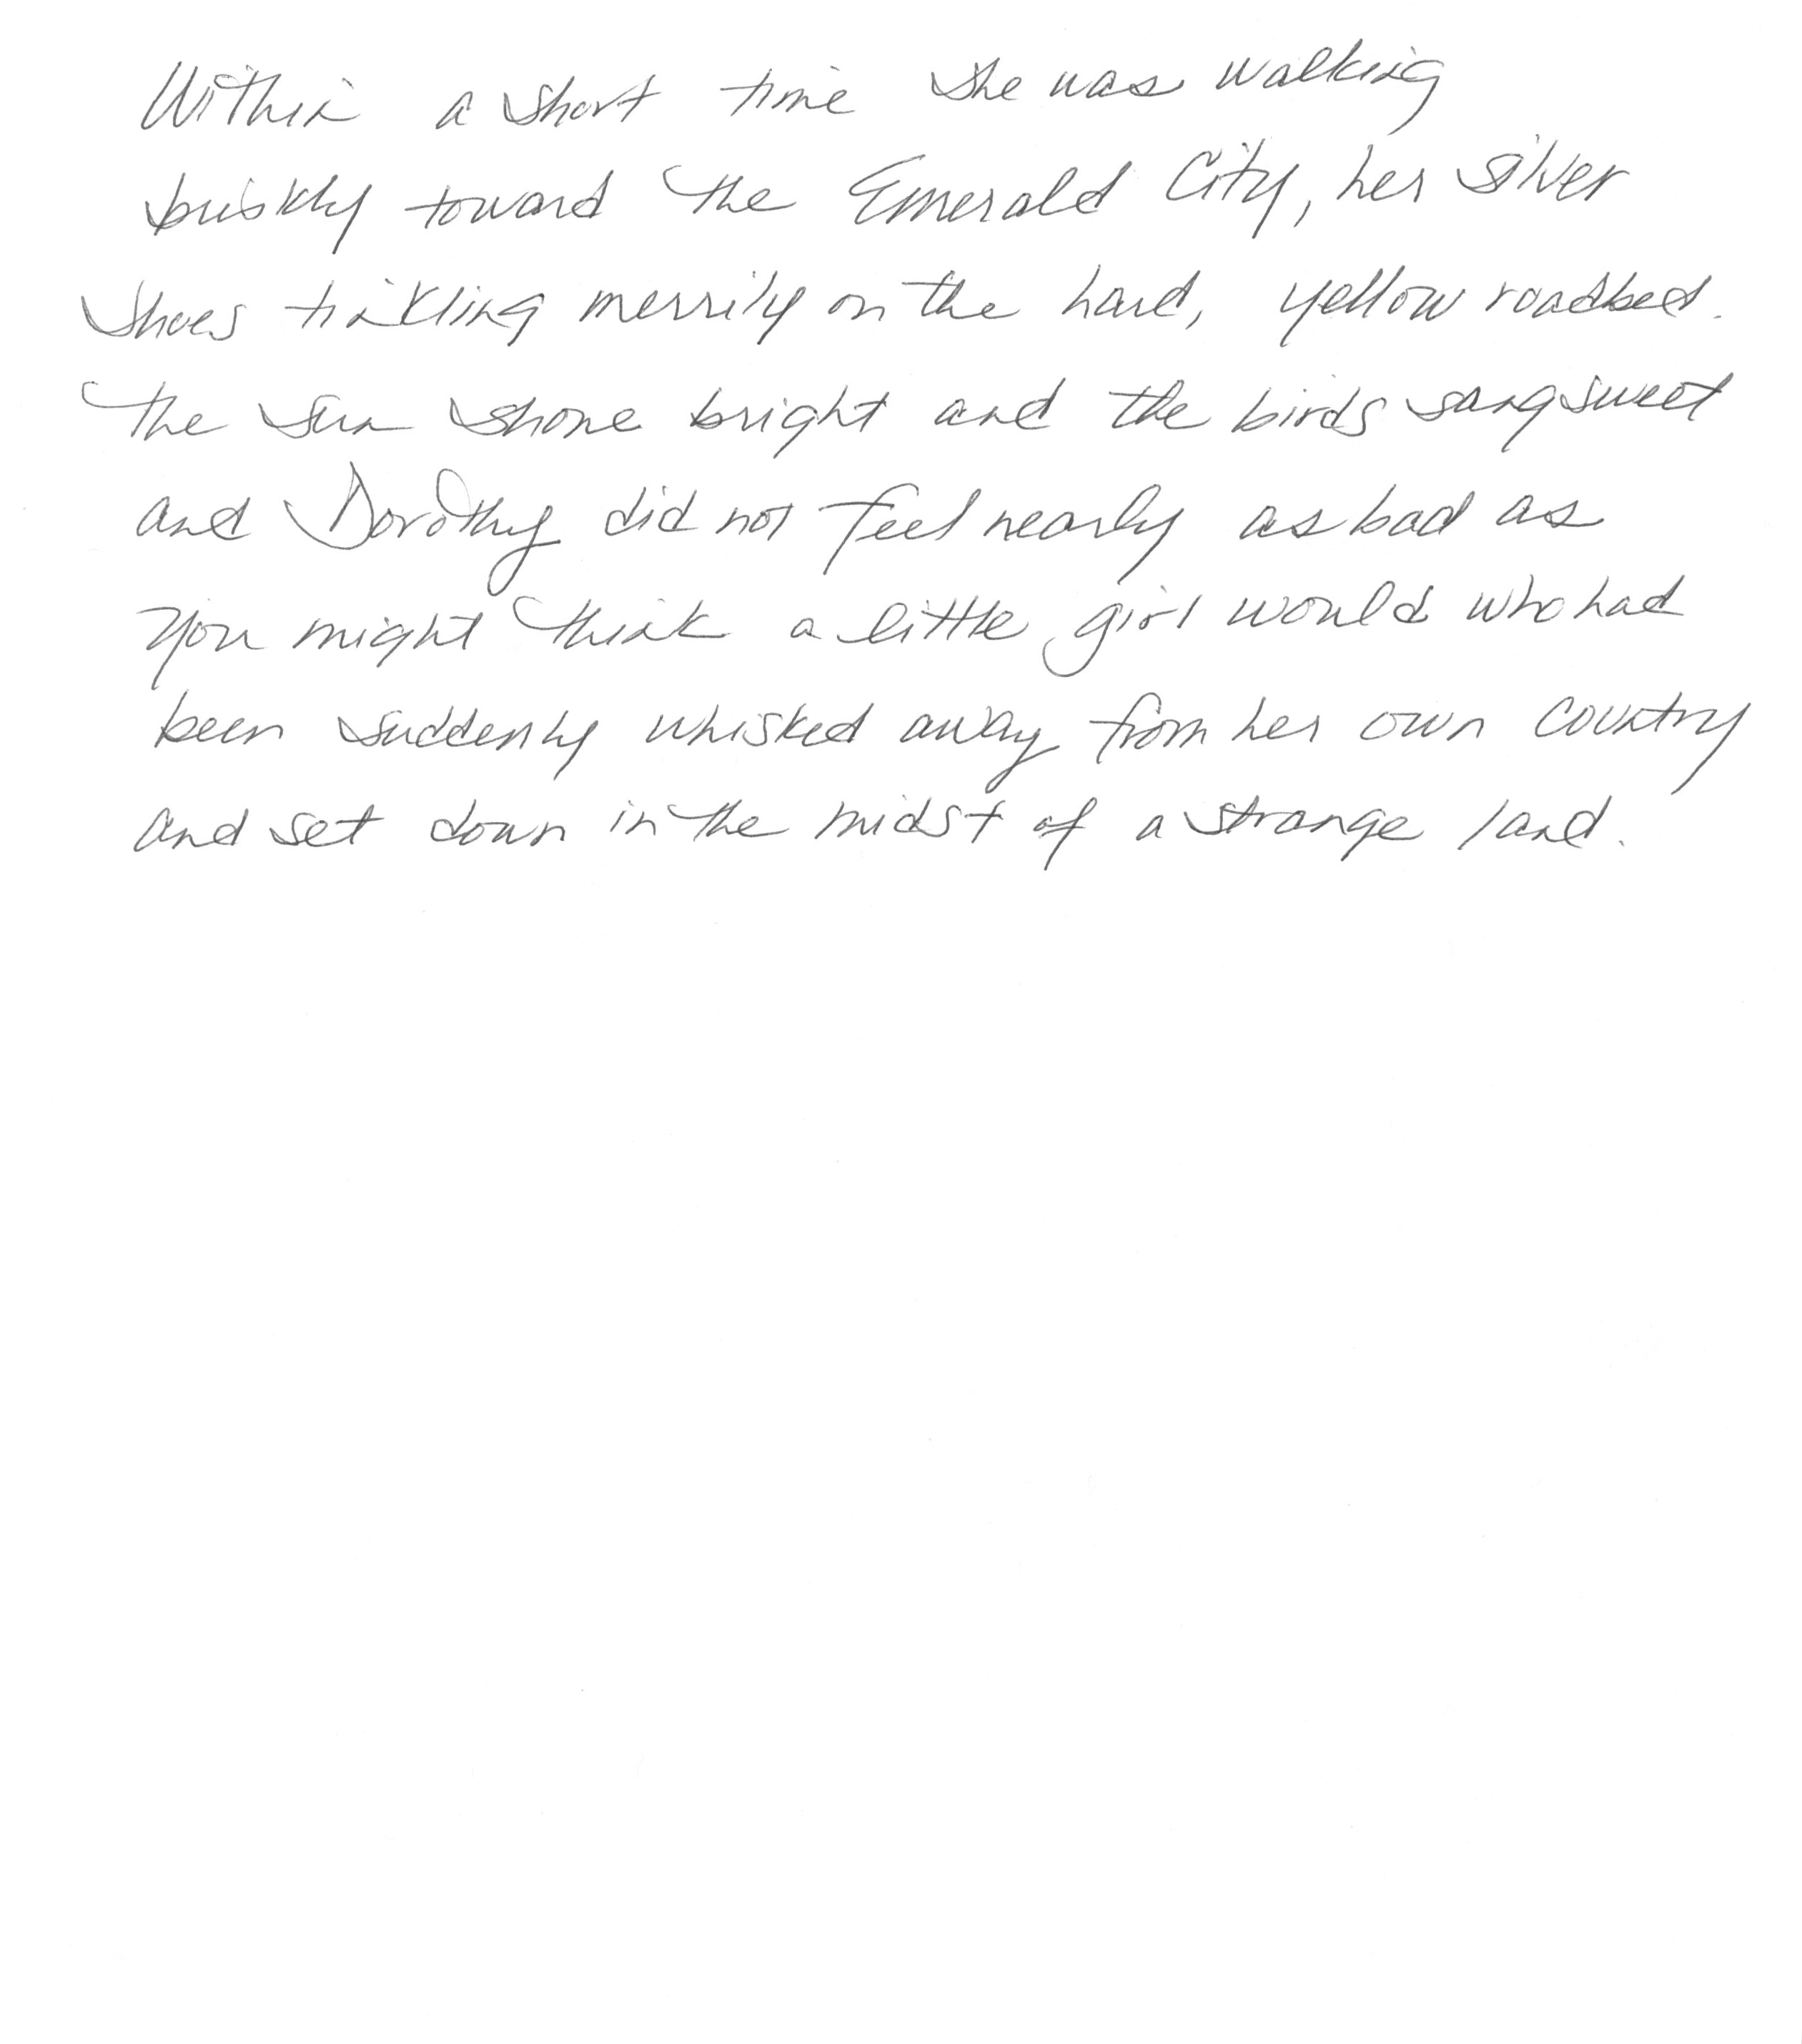 Within a short time she was walking
briskly toward the Emerald City, her silver
shoes tinkling merrily on the hard, yellow roadbed.
The sun shone bright and the birds sang sweet
and Dorothy did not feel nearly as bad as
you might think a little girl would who had
been suddenly whisked away from her own country
and set down in the midst of a strange land.